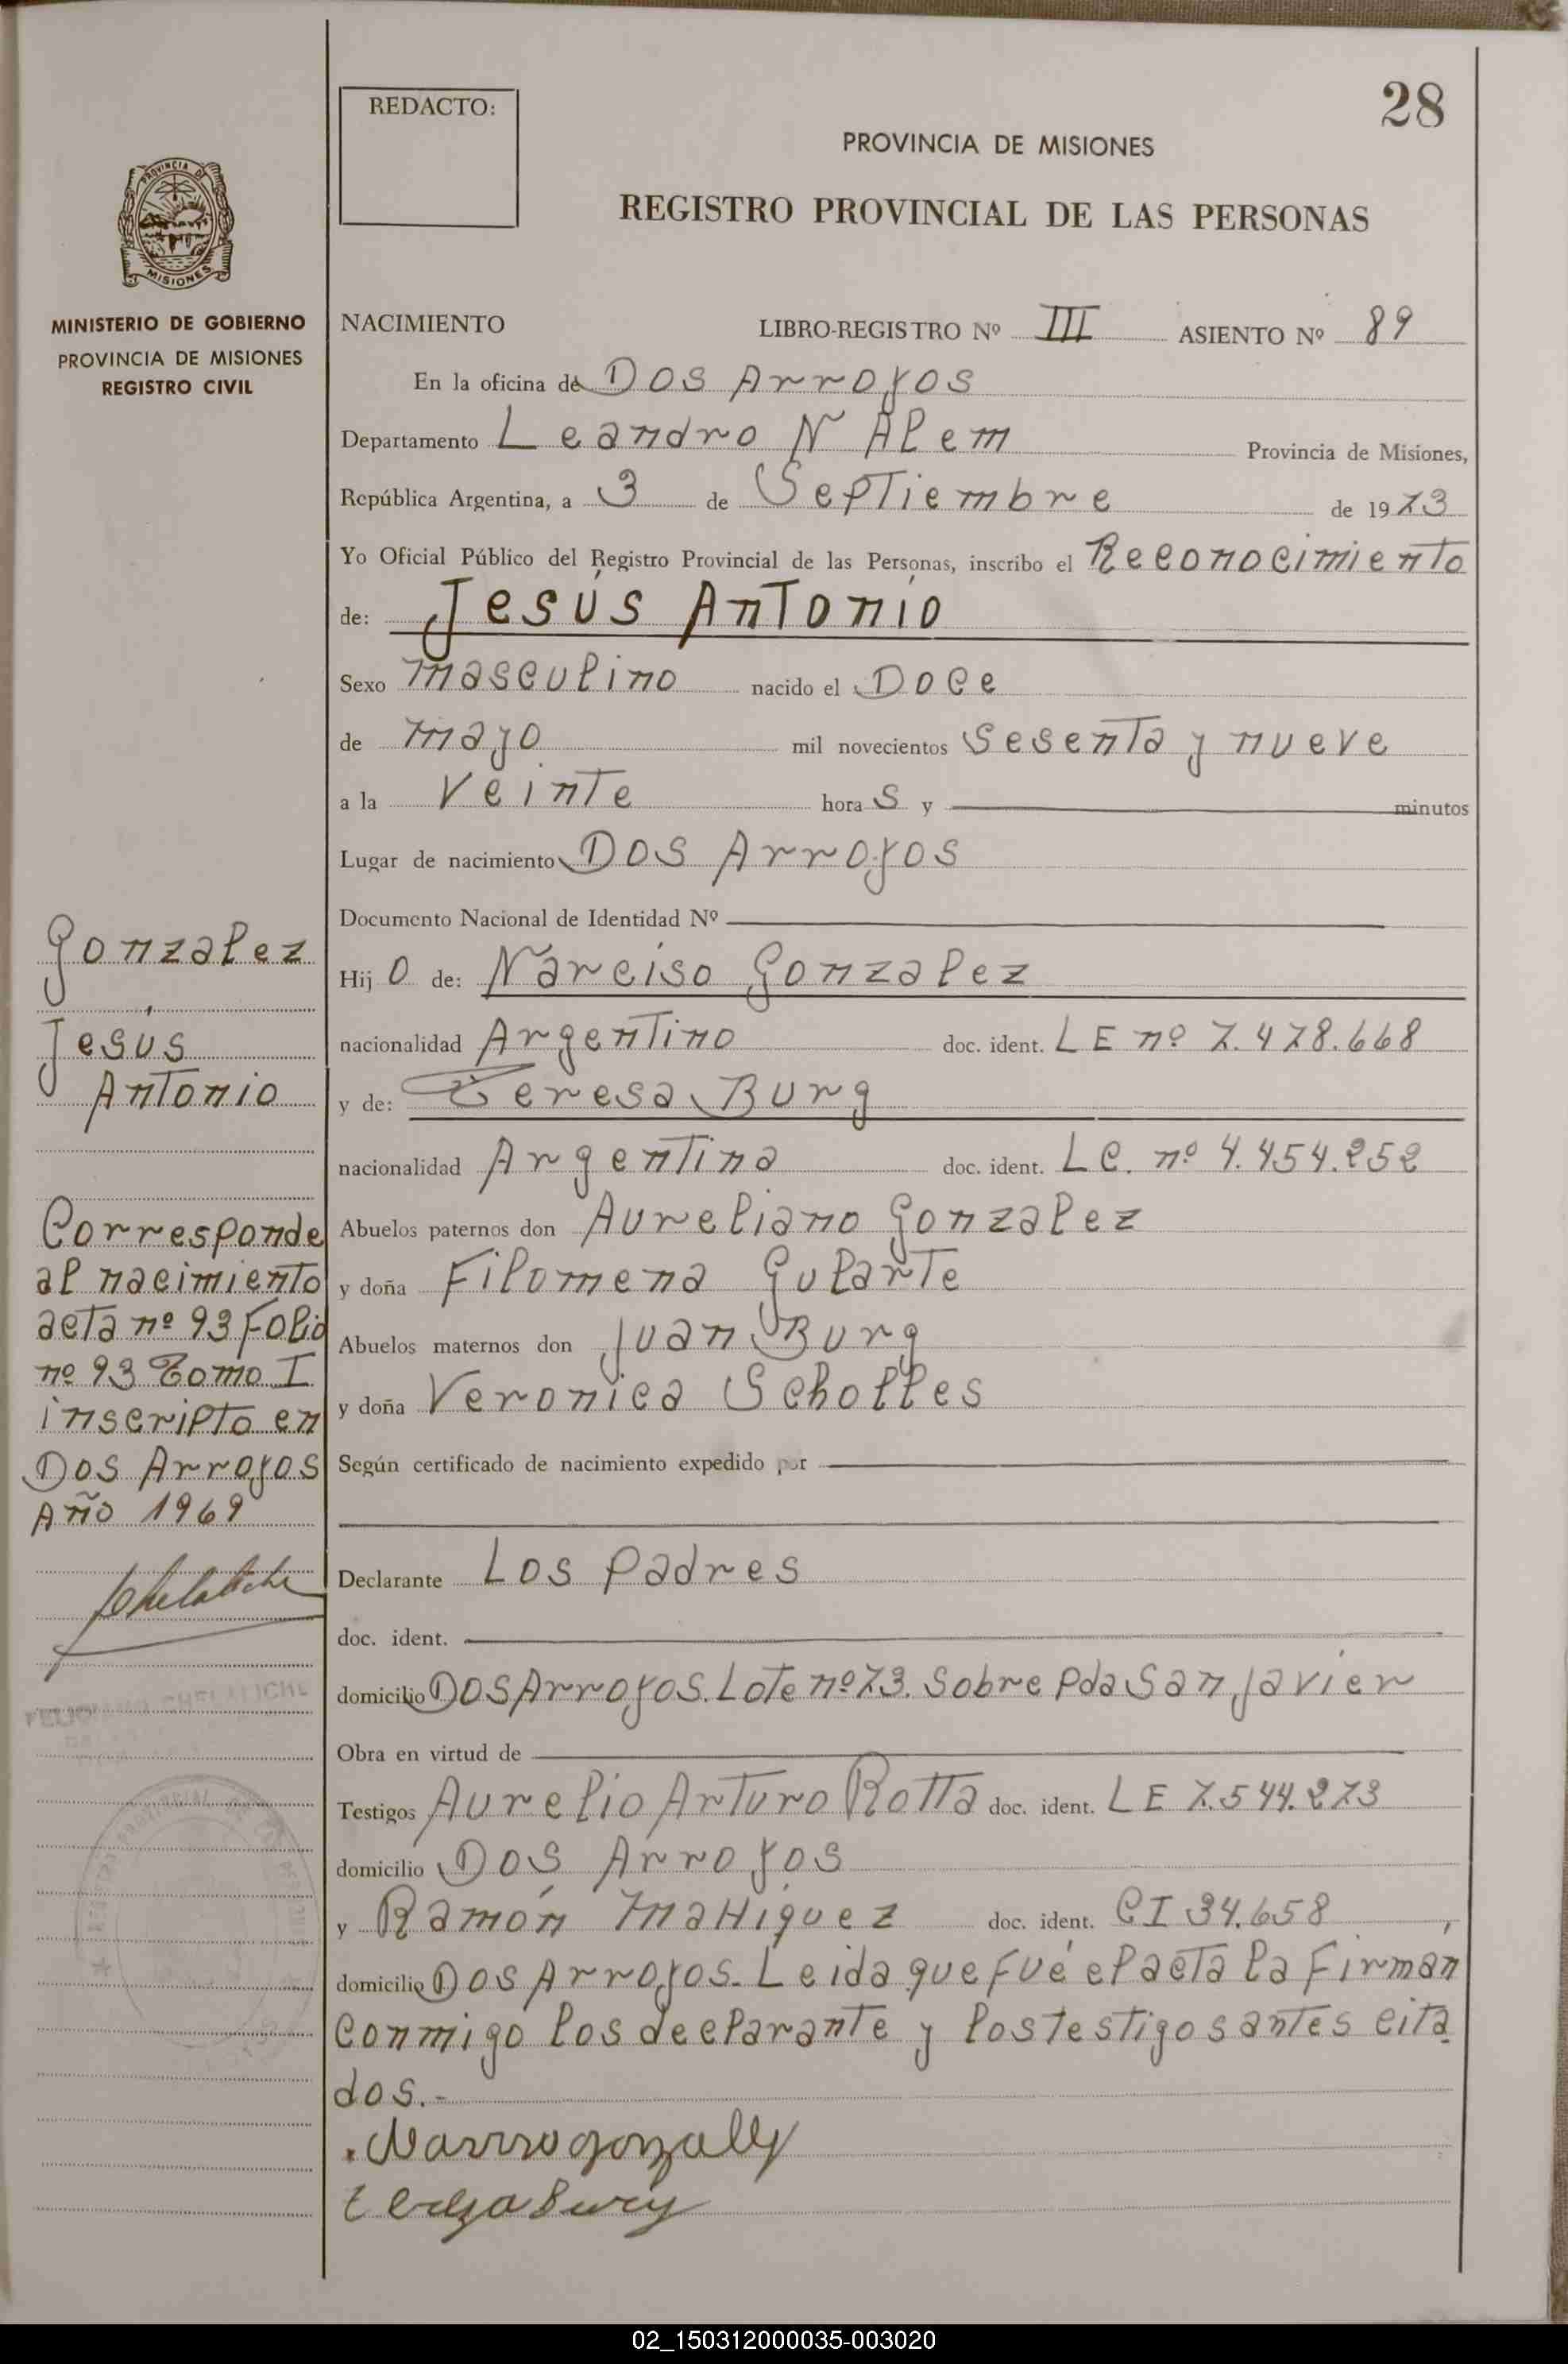 28
REDACTO:
PROVINCIA DE MISIONES
REGISTRO PROVINCIAL DE LAS PERSONAS
PROVINCIA DE
MISIONES
MINISTERIO DE GOBIERNO
PROVINCIA DE MISIONES
REGISTRO CIVIL
NACIMIENTO LIBRO-REGISTRO Nº III ASIENTO Nº 89
En la oficina de Dos Arroyos
Departamento Leandro N Alem Provincia de Misiones,
República Argentina, a 3 de Septiembre de 1973
Yo Oficial Público del Registro Provincial de las Personas, inscribo el Reconocimiento
de: Jesús Antonio
Sexo masculino nacido el Doce
de mayo mil novecientos sesenta y nueve
a la veinte hora s y minutos
Lugar de nacimiento Dos Arroyos
Documento Nacional de Identidad Nº
Hij o de: Narciso Gonzalez
nacionalidad Argentino doc. ident. LE nº 7.478.668
y de: Teresa Burg
nacionalidad Argentina doc. ident. LC. nº 4.454.252
Abuelos paternos don Aureliano Gonzalez
y doña Filomena Gularte
Abuelos maternos don Juan Burg
y doña Veronica Scholles
Según certificado de nacimiento expedido por
Declarante Los padres
doc. ident.
domicilio Dos Arroyos. Lote nº 73. Sobre Pda San Javier
Obra en virtud de
Testigos Aurelio Arturo Rotta doc. ident. LE 7.544.273
domicilio Dos Arroyos
y Ramón maHiquez doc. ident. CI 34.658
domicilio Dos Arroyos. Leida que fué el acta la firmán
conmigo los declarante y los testigos antes cita
dos.-
Narciso gonzalez
tereza Burg
Gonzalez
Jesús
Antonio
Corresponde
al nacimiento
acta nº 93 Folio
nº 93 Tomo I
inscripto en
Dos Arroyos
Año 1969
02_150312000035-003020